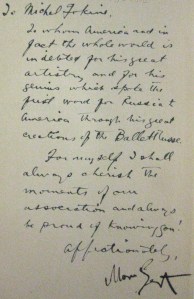 To Michel Fokine
To whom America and in
fact the whole world is
indebted for his great
artistry and for his
genius which spoke the
first word for Russia to
America through his great
creations of the Ballet Russe.
For myself I shall
always cherish the
moments of our
association and always
be proud of knowing you!
affectionately,
Morris Gest